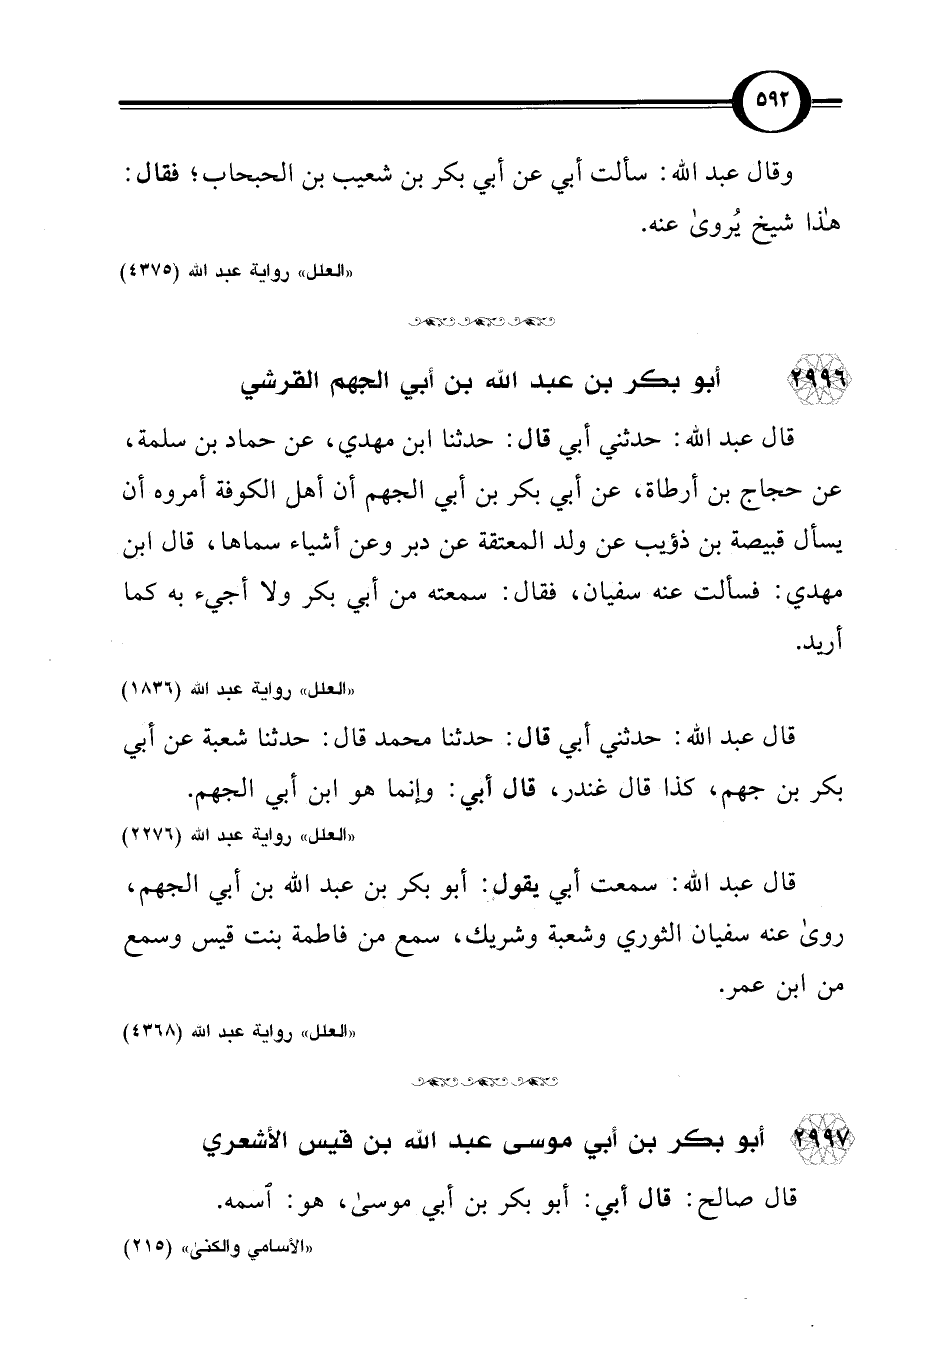 ٥٩٢
وقال عبد الله: سألت أبي عن أبي بكر بن شعيب بن الحبحاب؛ فقال:
هٰذا شيخ يُروىٰ عنه.
«العلل» رواية عبد الله (٤٣٧٥)
٢٩٩٦ أبو بكر بن عبد الله بن أبي الجهم القرشي
قال عبد الله: حدثني أبي قال: حدثنا ابن مهدي، عن حماد بن سلمة،
عن حجاج بن أرطاة، عن أبي بكر بن أبي الجهم أن أهل الكوفة أمروه أن
يسأل قبيصة بن ذؤيب عن ولد المعتقة عن دبر وعن أشياء سماها، قال ابن
مهدي: فسألت عنه سفيان، فقال: سمعته من أبي بكر ولا أجيء به كما
أريد.
«العلل» رواية عبد الله (١٨٣٦)
قال عبد الله: حدثني أبي قال: حدثنا محمد قال: حدثنا شعبة عن أبي
بكر بن جهم، كذا قال غندر، قال أبي: وإنما هو ابن أبي الجهم.
«العلل» رواية عبد الله (٢٢٧٦)
قال عبد الله: سمعت أبي يقول: أبو بكر بن عبد الله بن أبي الجهم،
روىٰ عنه سفيان الثوري وشعبة وشريك، سمع من فاطمة بنت قيس وسمع
من ابن عمر.
«العلل» رواية عبد الله (٤٣٦٨)
٢٩٩٧ أبو بكر بن أبي موسى عبد الله بن قيس الأشعري
قال صالح: قال أبي: أبو بكر بن أبي موسىٰ، هو: ٱسمه.
«الأسامي والكنىٰ» (٢١٥)